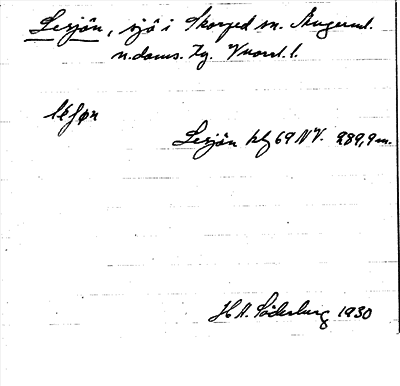 Lesjön, sjö i Skorped sn. Ångerml.
n. doms. Zg. Vnorrl. l.
léʃøn
Lesjön kbl 69 NV. 289,9 m.
H. A. Söderberg 1930